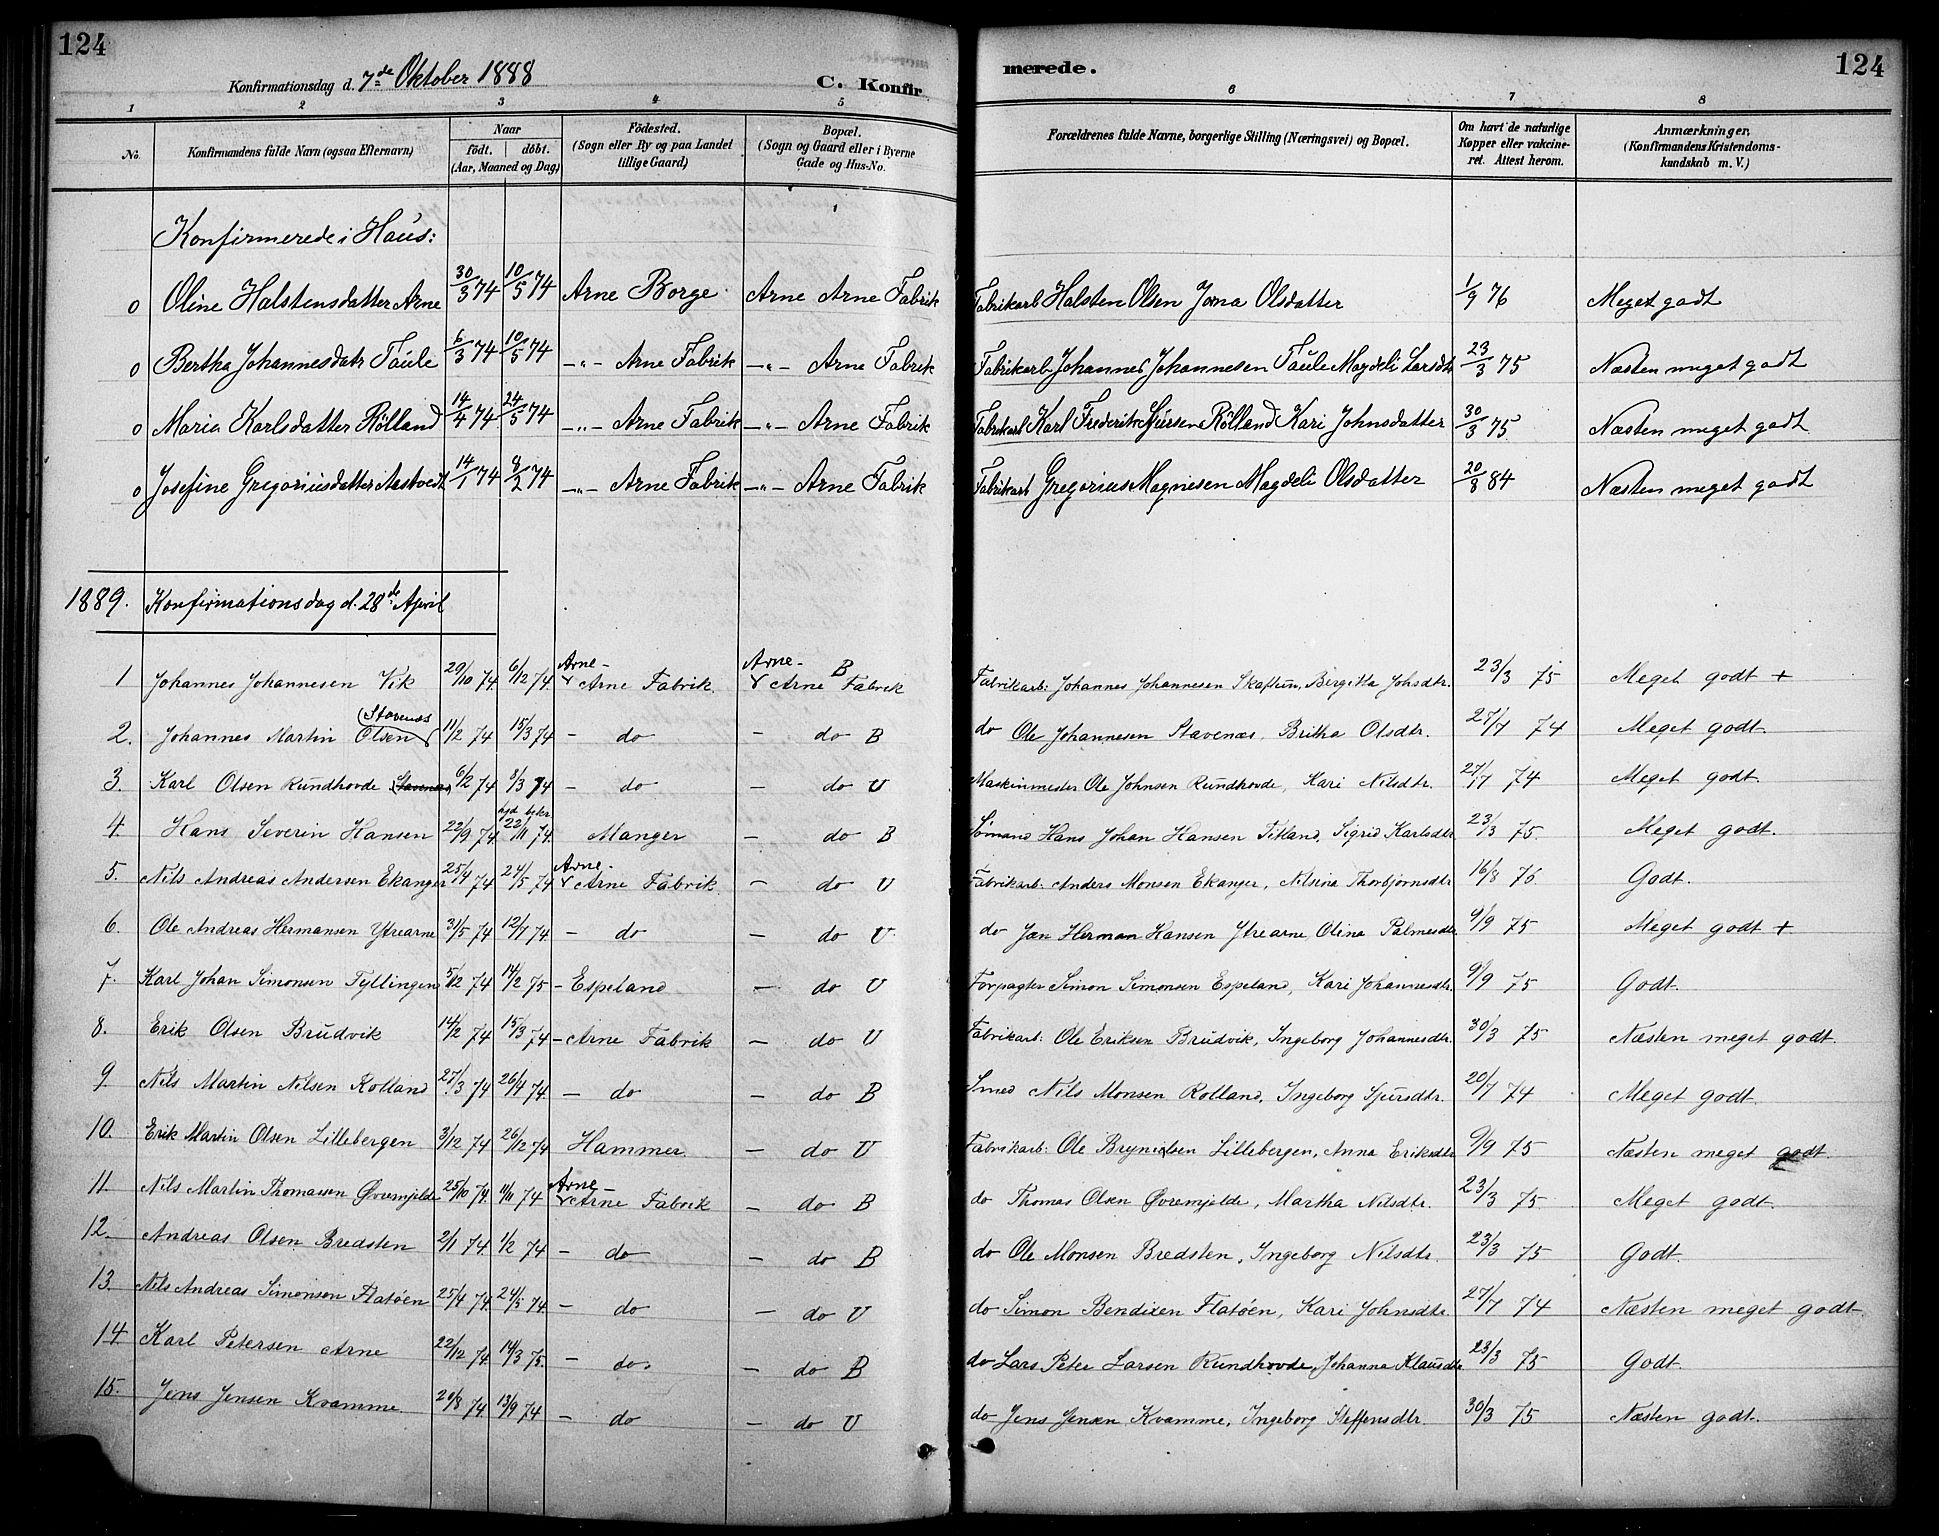 124
Konfirmationsdag d. 7de Oktober 1888 C. Konfir
merede. 124
1 2 3 4 5 6 7 8
No. Konfirmandens fulde Navn (ogsaa Efternavn) Naar født. døbt. (Aar, Maaned og Dag) Födested. (Sogn eller By og paa Landet tillige Gaard) Bopæl. (Sogn og Gaard eller i Byerne Gade og Hus-No. Forældrenes fulde Navne, borgerlige Stilling (Næringsvei) og Bopæl. Om havt de naturlige Kopper eller vakcineret. Attest herom. Anmærkninger. (Konfirmandens Kristendomskundskab m. V.)
Konfirmerede i Haus:
0 Oline Halstensdatter Arne 30/3 74 10/5 74 Arne Borge Arne Arne Fabrik Fabrikarb Halsten Olsen Jorna Olsdatter 1/9 76 Meget godt
0 Bertha Johannesdatr Taule 6/3 74 10/5 74 -"- Arne Fabrik -"- Arne Fabrik Fabrikarb Johannes Johannesen Taule Magdeli Larsdtr 23/3 75 Næsten meget godt
0 Maria Karlsdatter Rölland 14/4 74 24/5 74 -"- Arne Fabrik -"- Arne Fabrik Fabrikarb Karl Frederik Sjursen Rölland Kari Johnsdatter 30/3 75 Næsten meget godt
0 Josefine Gregoriusdatter Aastvedt 14/1 74 8/2 74 -"- Arne Fabrik -"- Arne Fabrik Fabrikarb Gregorius Magnesen Magdeli Olsdatter 20/8 84 Næsten meget godt
1889. Konfirmationsdag d. 28de April
1 Johannes Johannesen Vik 29/10 74. 6/12 74. Arne- Arne Fabrik. Arne- Arne Fabrik B Fabrikarb: Johannes Johannesen Skaftun, Bergitta Johsdtr. 23/3 75 Meget godt +
2. Johannes Martin Olsen (Stavenæs) 11/2 74 15/3 74 - do - do B do Ole Johannesen Stavenæs, Britha Olsdtr. 27/7 74 Meget godt.
3. Karl Olsen Rundhovde 6/2 74 8/3 74 - do - do U Maskinmester Ole Johnsen Rundhovde, Kari Nilsdtr. 27/7 74 Meget godt.
4. Hans Severin Hansen 22/9 74. 22/11 74. Manger - do B Sömand Hans Johan Hansen Titland, Sigrid Karlsdtr 23/3 75. Meget godt.
5. Nils Andreas Andersen Ekanger 25/4 74 24/5 74 Arne- Arne Fabrik - do U Fabrikarb: Anders Monsen Ekanger, Nilsina Thorbjörnsdtr 16/8 76 Godt.
6. Ole Andreas Hermansen Ytrearne 31/5 74 12/7 74. - do - do U. do Jan Herman Hansen Ytrearne, Olina Palmesdtr 9/9 75 Meget godt +
7. Karl Johan Simonsen Tyllingen 5/12 74 14/2 75 - Espeland - do U Forpagter Simon Simonsen Espeland, Kari Johannesdtr. 9/9 75 Godt.
8. Erik Olsen Brudvik 14/2 74 15/3 74 - Arne Fabrik - do U Fabrikarb: Ole Eriksen Brudvik, Ingeborg Johannesdtr. 30/3 75 Næsten meget godt.
9 Nils Martin Nilsen Rolland 27/3 74 26/4 74. - do - do B Smed Nils Monsen Rolland, Ingeborg Sjursdtr. 20/7 74 Meget godt.
10. Erik Martin Olsen Lillebergen 3/12 74 26/12 74 Hammer. - do U Fabrikarb: Ole Brynielsen Lillebergen, Anna Eriksdtr 9/9 75 Næsten meget godt.
11. Nils Martin Thomassen Øvremjelde 25/10 74. 1/11 74 Arne- Arne Fabrik - do B do Thomas Olsen Øvremjelde, Martha Nilsdtr. 23/3 75. Meget godt.
12. Andreas Olsen Bredsten 2/1 74. 1/2 74 - do - do B do Ole Monsen Bredsten, Ingeborg Nilsdtr. 23/3 75 Godt.
13. Nils Andreas Simonsen Flatöen 25/4 74. 24/5 74. - do - do U do Simon Bendixen Flatöen, Kari Johnsdtr 27/7 74 Næsten meget godt.
14. Karl Petersen Arne 22/12 74. 14/3 75. - do. - do B do Lars Peter Larsen Rundhovde, Johanna Klausdtr 23/3 75 Godt.
15. Jens Jensen Kvamme. 20/8 74 13/9 74 - do - do U do Jens Jensen Kvamme, Ingeborg Steffensdtr. 30/3 75 Næsten godt.